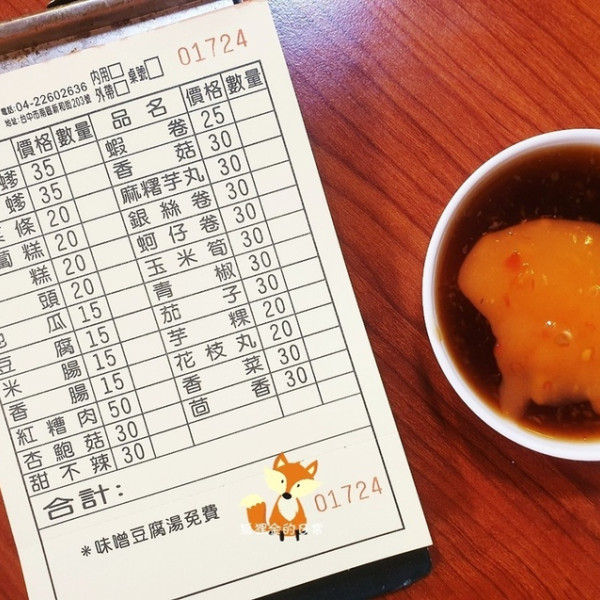 01724
電話:04-22602636 內用□ 桌號□
地址:台中市南區新和街203號 外帶□
價格 數量 品名 價格 數量
35 蝦卷 25
35 香菇 30
條 20 麻糬芋丸 30
糕 20 銀絲卷 30
糕 20 蚵仔卷 30
頭 20 玉米筍 30
瓜 15 青椒 30
豆腐 15 茄子 30
米腸 15 芋粿 20
香腸 15 花枝丸 30
紅糟肉 50 香菜 30
杏鮑菇 30 茴香 30
甜不辣 30
合計:
01724
*味噌豆腐湯免費
狐狸金的日常